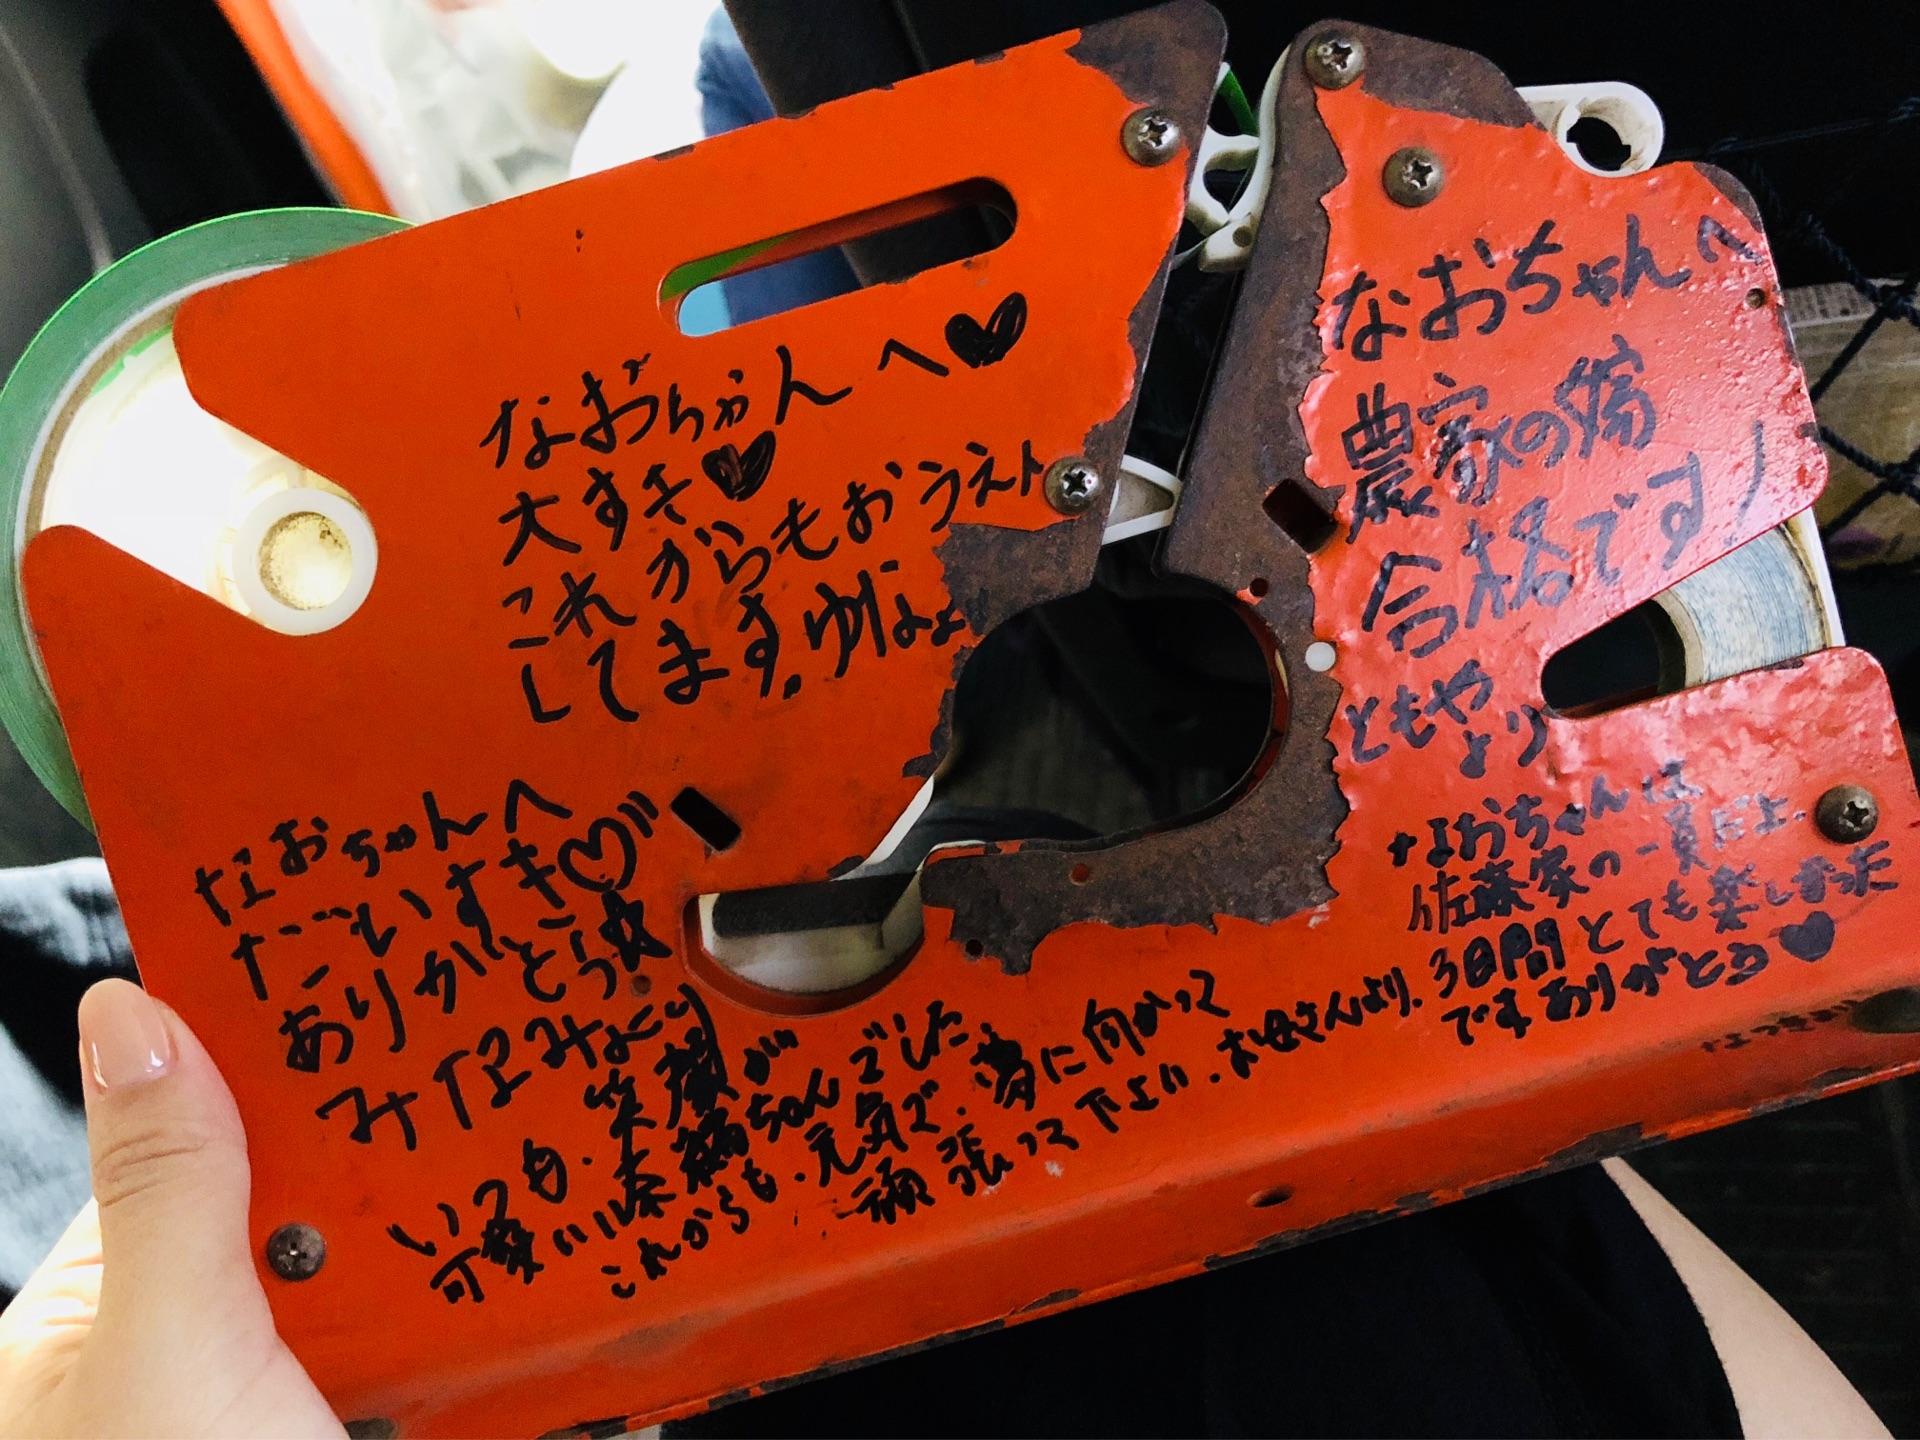 なおちゃんへ♥
大すき♥
これからもおうえん
してます。ゆりなより
なおちゃんへ
だいすき♡
ありがとう☆
みなみより
いつも・笑顔が
可愛い奈緒ちゃんでした
これからも・元気で・夢に向かって
頑張って下よい・お母さんより.
なおちゃんへ
農家の嫁
合格です!
ともや
より
なおちゃんは
佐藤家の一員だよ。
3日間とても楽しかった
ですありがとう♥
なつきより